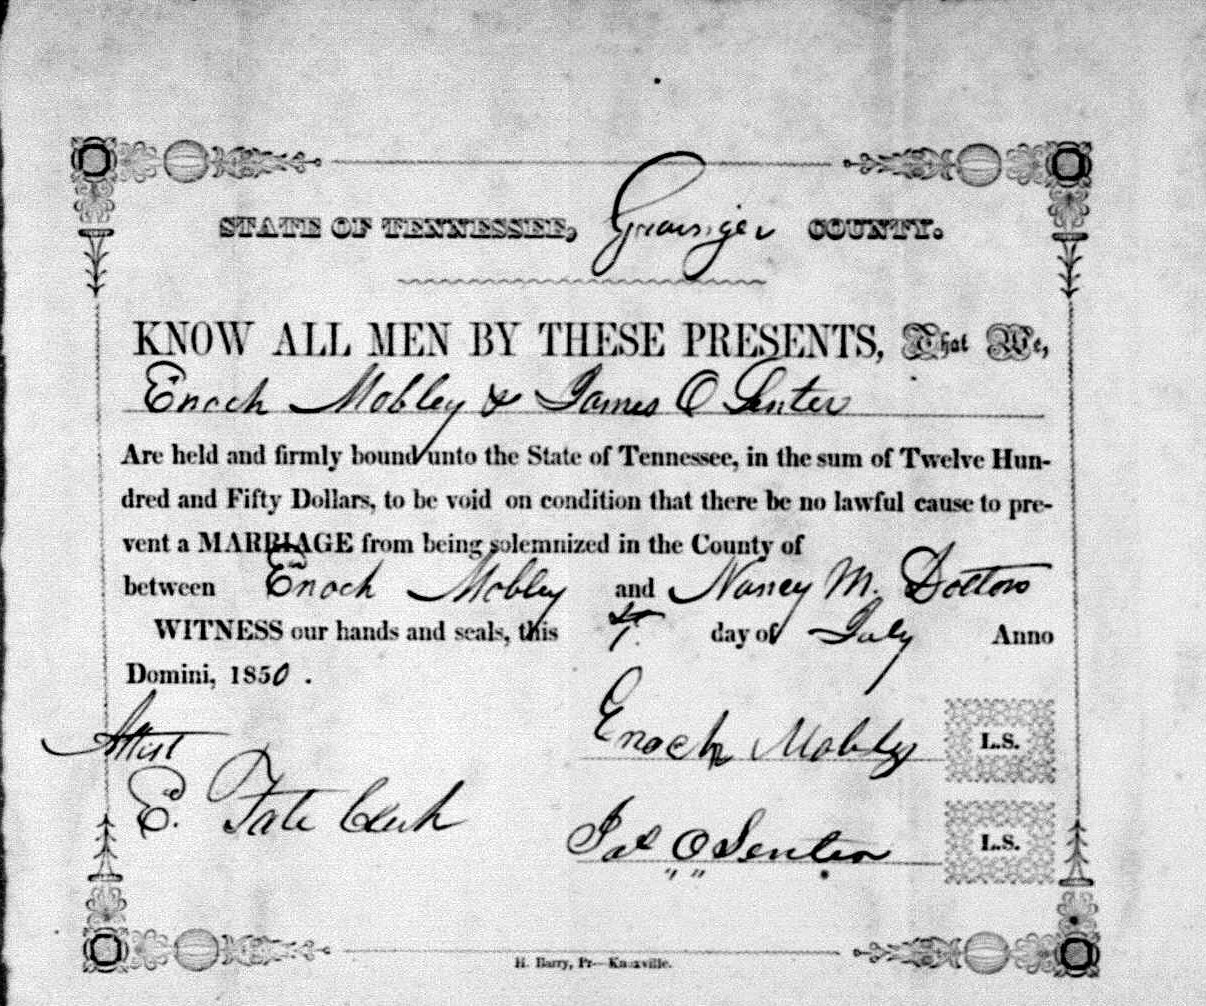 STATE OF TENNESSEE, Grainger COUNTY.
KNOW ALL MEN BY THESE PRESENTS, That We,
Enoch Mobley & James O Senter
Are held and firmly bound unto the State of Tennessee, in the sum of Twelve Hun-
dred and Fifty Dollars, to be void on condition that there be no lawful cause to pre-
vent a MARRIAGE from being solemnized in the County of
between Enoch Mobley and Nancy M.
WITNESS our hands and seals, this day of July Anno
Domini, 1850.
Attest
Enoch Mobley L.S.
E. Tate Clerk
Jas O Senter L.S.
H. Barry, Pr—Knoxville.